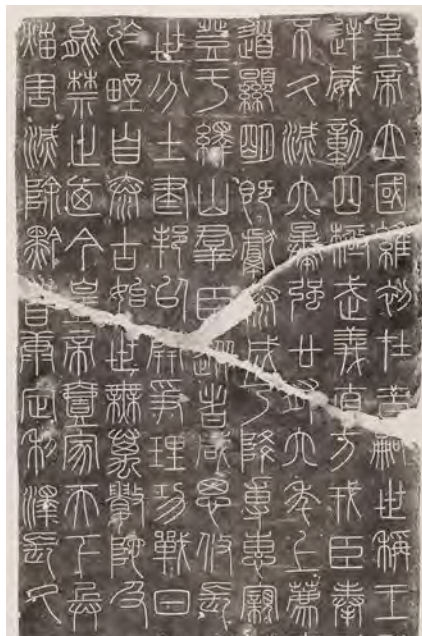 皇帝立國維初在昔嗣世稱王
逆威動四極武義直方戎臣奉
不久滅六暴強廿有六年上薦
道顯明既獻泰成乃降專惠親
登于繹山群臣從者咸思攸長
世分土建邦以開爭理功戰日
於野自泰古始世無萬數陀及
能禁止迺今皇帝壹家天下兵
災害滅除黔首康定利澤長久